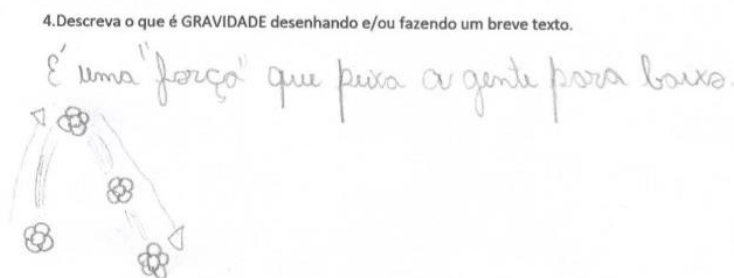 4.Descreva o que é GRAVIDADE desenhando e/ou fazendo um breve texto.
É uma "força" que puxa a gente para baixo.